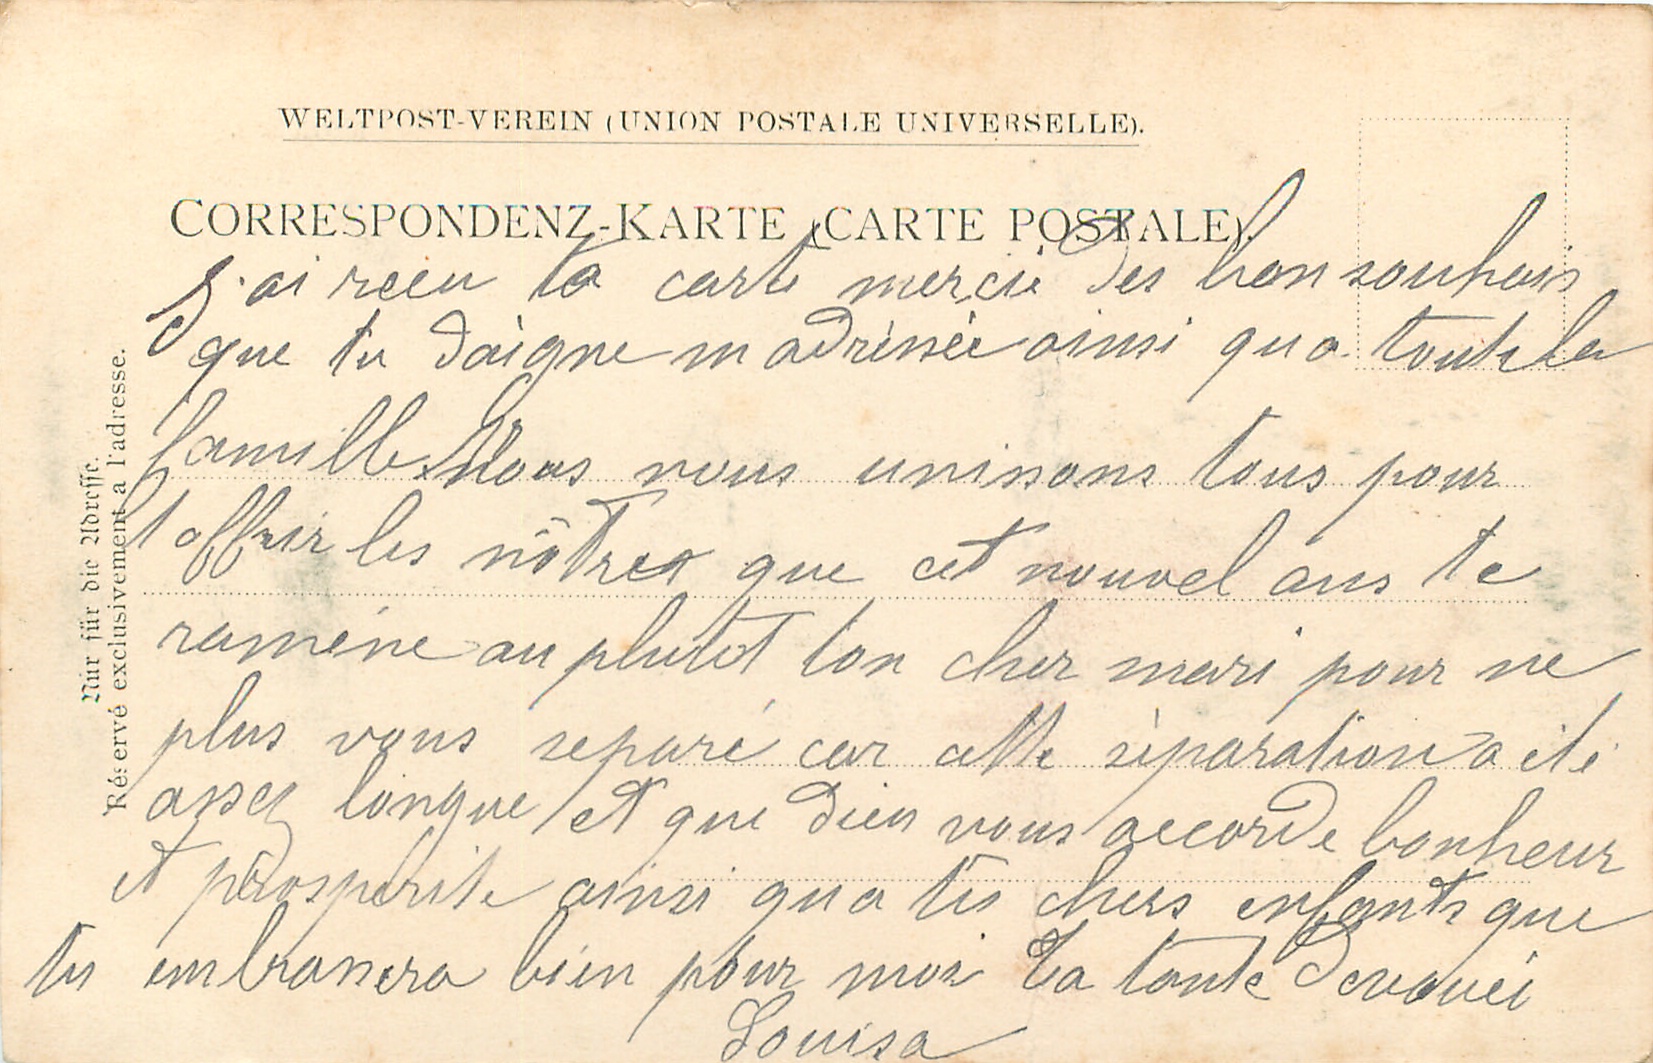 WELTPOST-VEREIN (UNION POSTALE UNIVERSELLE).
CORRESPONDENZ-KARTE (CARTE POSTALE).
Nur für die Adresse.
Réservé exclusivement a l'adresse.
J'ai recu ta carte mercie des bon souhais
que tu daigne m adréssée ainsi qu a toute la
famille. Nous nous unissons tous pour
t offrir les nôtres que cet nouvel ans te
ramène au plutot ton cher mari pour ne
plus vous separé car cette séparation a été
assez longue et que dieu vous accorde bonheur
et prosperite ainsi qu a tes chers enfants que
tu embrassera bien pour moi Ta tante Devouéé
Louisa